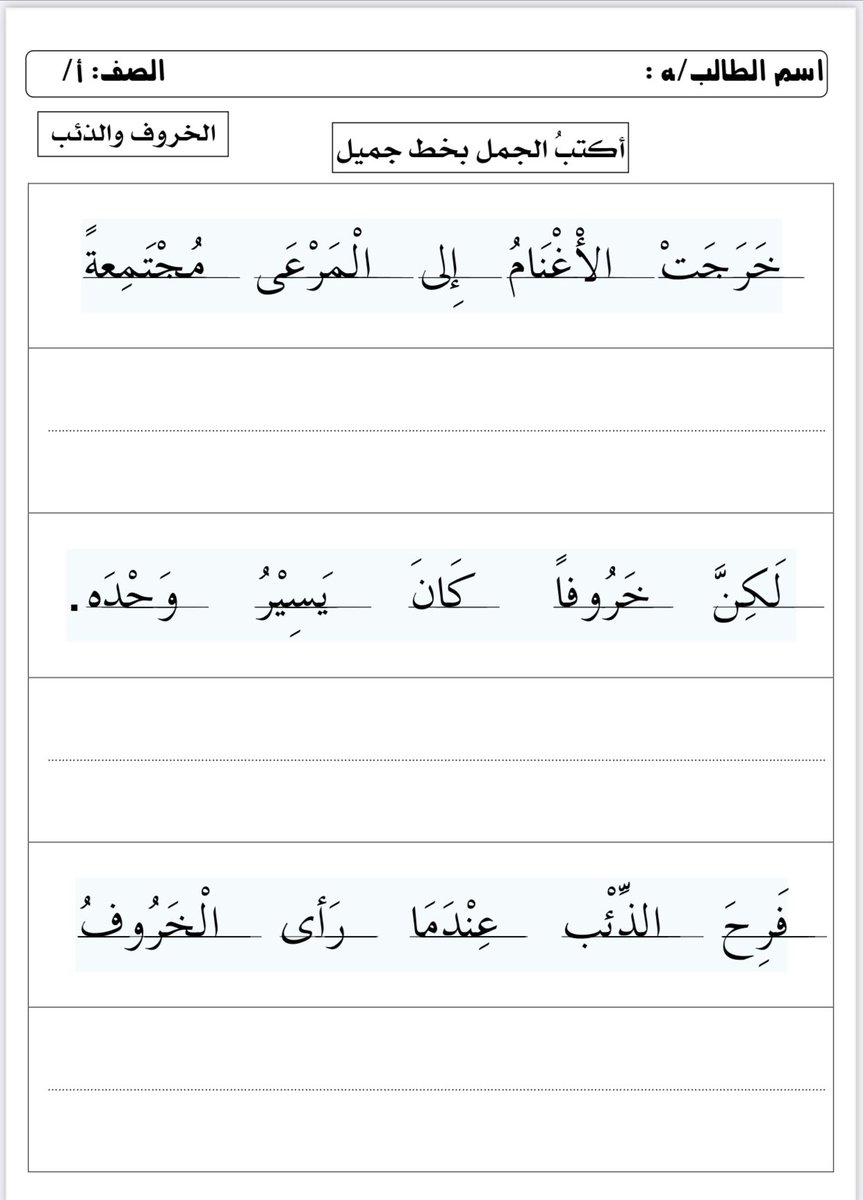 اسم الطالب/ه : الصف: أ/
أكتبُ الجمل بخط جميل
الخروف والذئب
خَرَجَتْ الأْغْنَامُ إِلى الْمَرْعَى مُجْتَمِعةً
لَكِنَّ خَرُوفاً كَانَ يَسِيْرُ وَحْدَه.
فَرِحَ الذِّئْب عِنْدَمَا رَأى الْخَرُوفُ